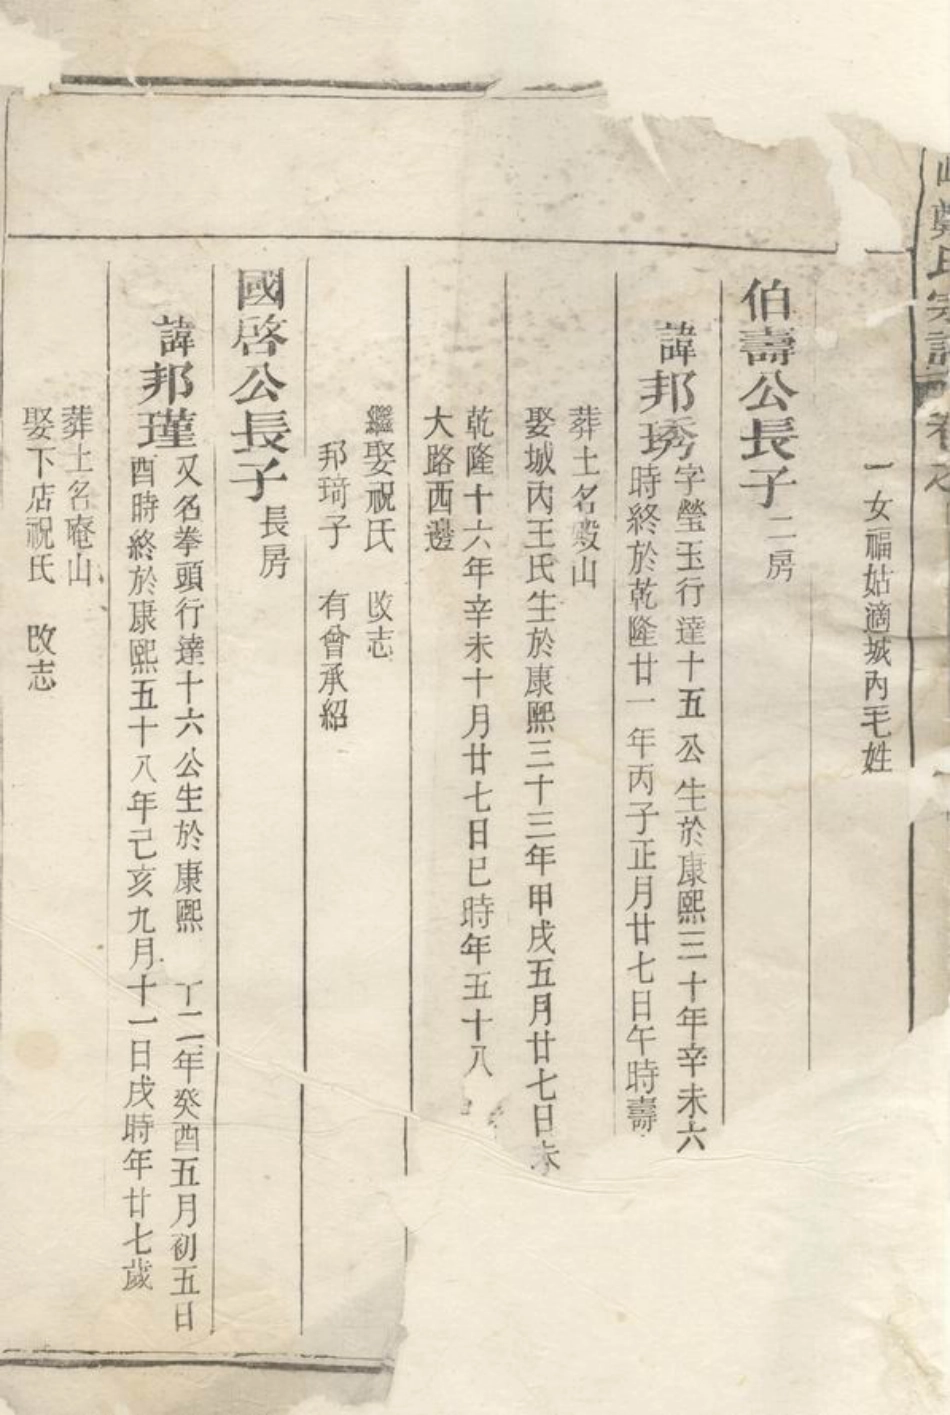 鄭氏宗譜 卷
一女福姑適城內毛姓
伯壽公長子二房
諱邦琇字瑩玉行達十五公生於康熙三十年辛未六
時終於乾隆廿一年丙子正月廿七日午時壽
葬土名殿山
娶城內王氏生於康熙三十三年甲戌五月廿七日未
乾隆十六年辛未十月廿七日巳時年五十八
大路西邊
繼娶祝氏 改志
邦琦子 有曾承紹
國啓公長子長房
諱邦瑾又名拳頭行達十六公生於康熙 二年癸酉五月初五日
酉時終於康熙五十八年己亥九月十一日戌時年廿七歲
葬土名庵山
娶下店祝氏 改志